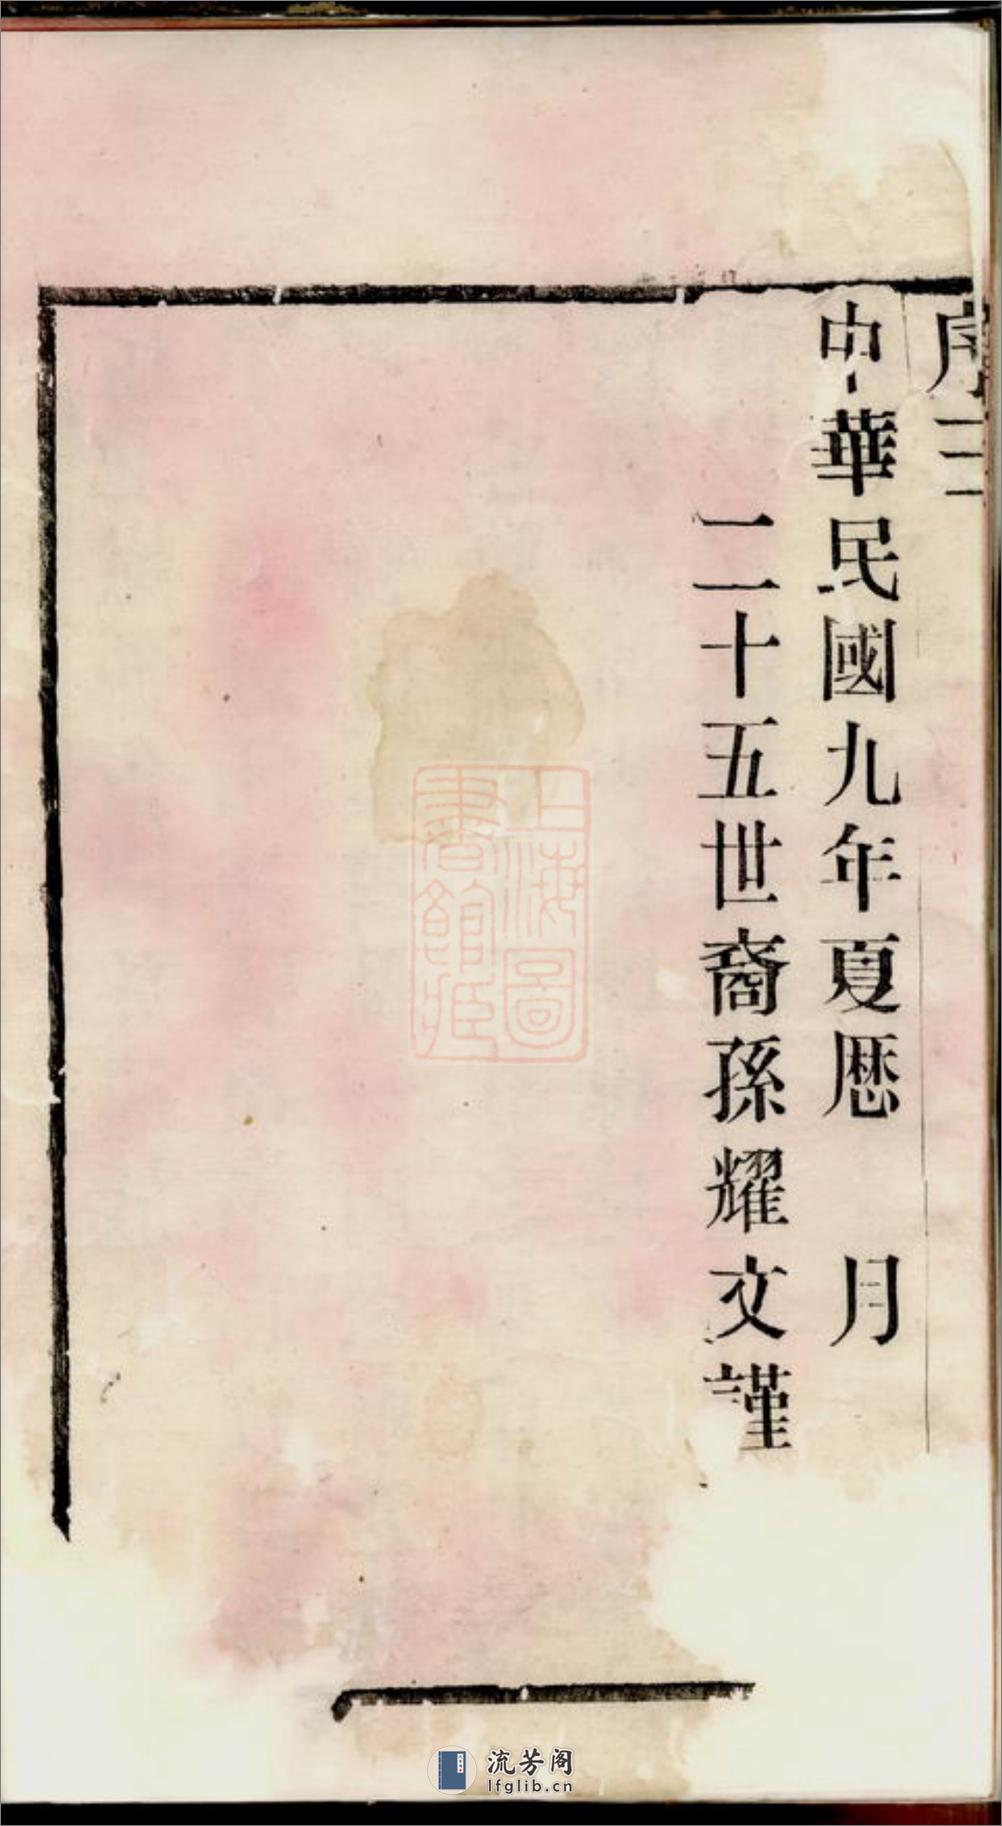 序三
中華民國九年夏厯　月
二十五世裔孫耀文謹
上海圖書館藏
流芳阁
lfglib.cn